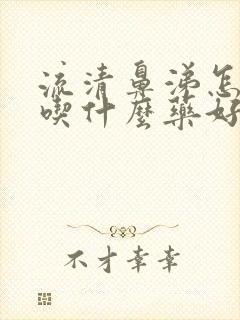 流清鼻涕怎
喫什麼藥好
不才幸幸